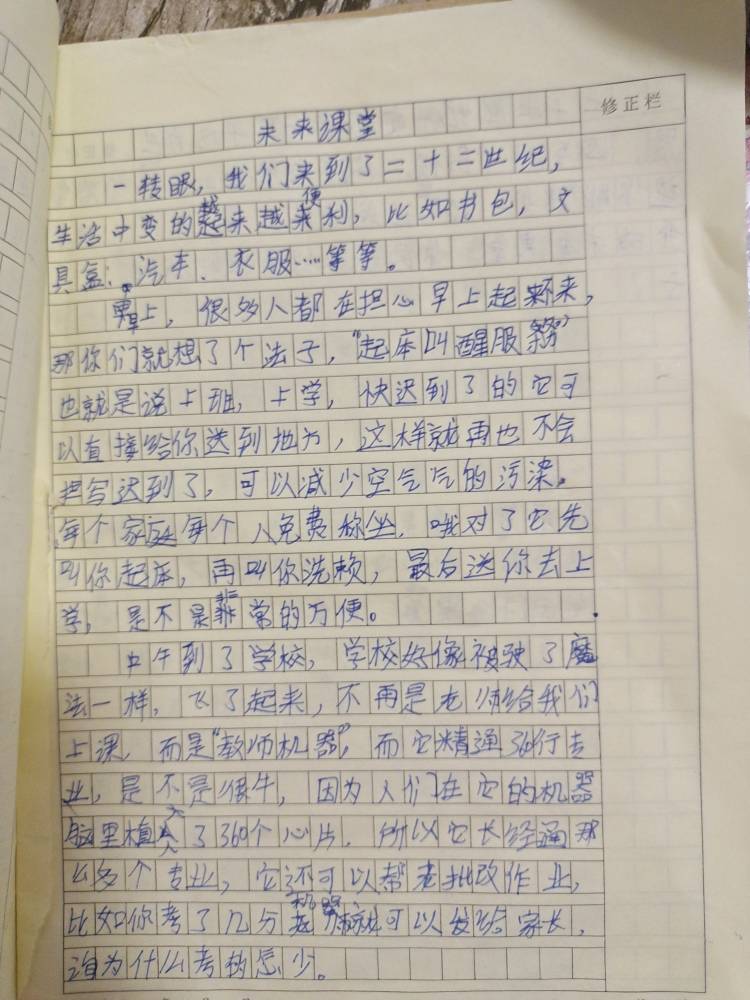 修正栏
未来课堂
一转眼，我们来到了二十二世纪，
生活中变的越来越便利，比如书包，文
具盒、汽车、衣服……等等。
早上，很多人都在担心早上起来，
那你们就想了个法子，“起床叫醒服务”
也就是说上班，上学，快迟到了的它可
以直接给你送到地方，这样就再也不会
迟到了，可以减少空气气的污染。
每个家庭每个人免费你坐，哦对了它先
叫你起床，再叫你洗赖，最后送你去上
学，是不是非常的方便。
中午到了学校，学校好像被驶了魔
法一样，飞了起来，不再是老师给我们
上课，而是“教师机器”，而它精通360行专
业，是不是很牛，因为人们在它的机器
脑里植入了360个心片，所以它长经通那
么多个专业，它还可以帮老批改作业，
比如你考了几分机器就可以发给家长，
为什么考的怎少。